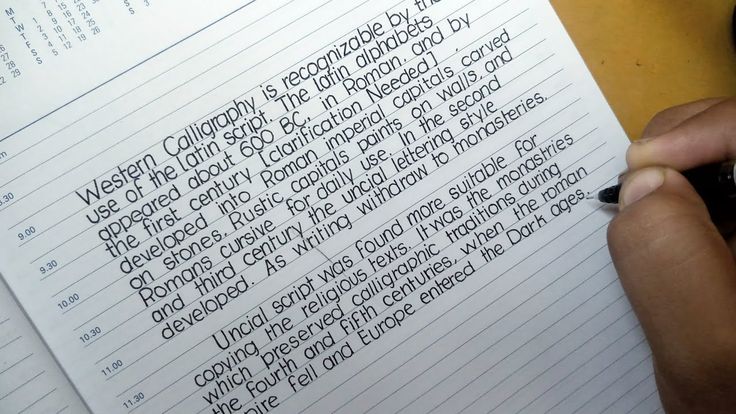 Western Calligraphy is recognizable by the
use of the latin script. The latin alphabets
appeared about 600 BC, in Roman, and by
the first century [clarification Needed]
developed into Roman imperial capitals carved
on stones, Rustic capitals paints on walls, and
Romans cursive for daily use. In the second
and third century the uncial lettering style
developed. As writing withdraw to monasteries,
Uncial script was found more suitable for
copying the religious texts. It was the monastries
which preserved calligraphic traditions during
the fourth and fifth centuries, when the roman
pire fell and Europe entered the Dark ages.
9.00
9.30
10.00
10.30
11.00
11.30